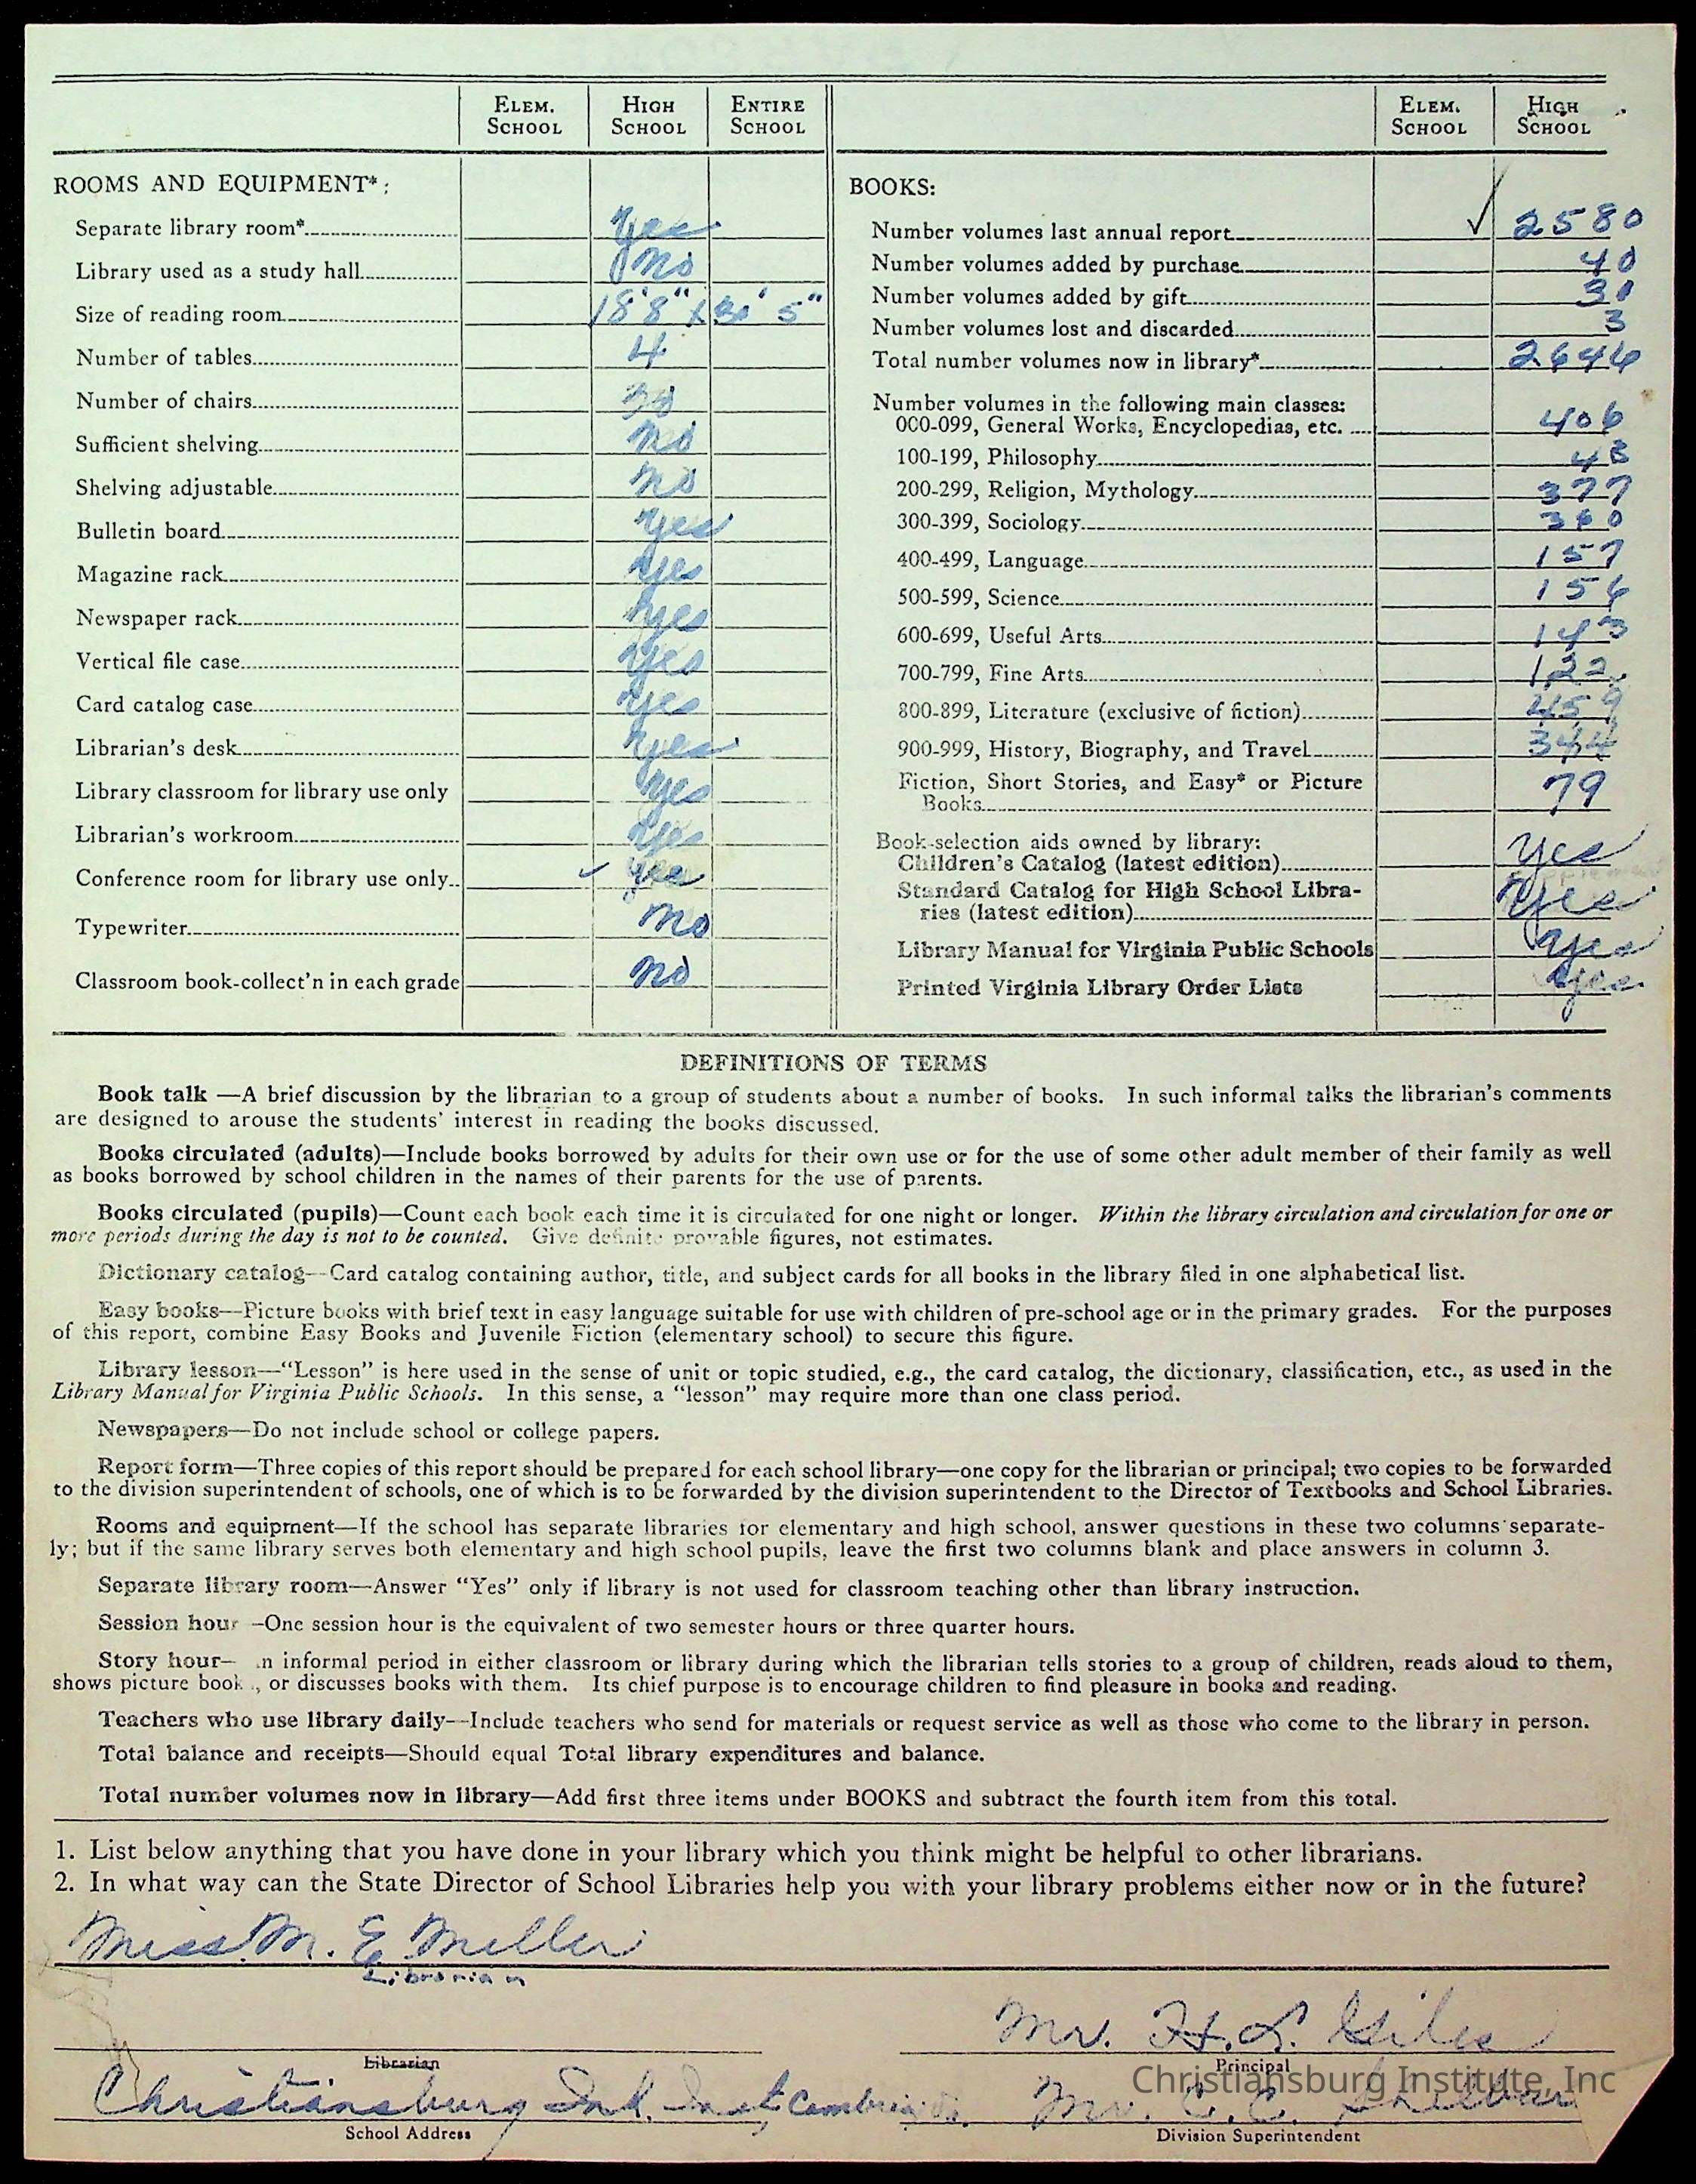 ELEM. SCHOOL HIGH SCHOOL ENTIRE SCHOOL
ROOMS AND EQUIPMENT*:
Separate library room* yes
Library used as a study hall no
Size of reading room 18'8" x 30' 5"
Number of tables 4
Number of chairs
Sufficient shelving no
Shelving adjustable no
Bulletin board yes
Magazine rack yes
Newspaper rack yes
Vertical file case yes
Card catalog case yes
Librarian's desk yes
Library classroom for library use only yes
Librarian's workroom yes
Conference room for library use only ✓ yes
Typewriter no
Classroom book-collect'n in each grade no
ELEM. SCHOOL HIGH SCHOOL
BOOKS:
Number volumes last annual report ✓ 2580
Number volumes added by purchase 40
Number volumes added by gift
Number volumes lost and discarded 3
Total number volumes now in library* 2646
Number volumes in the following main classes:
000-099, General Works, Encyclopedias, etc. 406
100-199, Philosophy 43
200-299, Religion, Mythology 377
300-399, Sociology 360
400-499, Language 157
500-599, Science 156
600-699, Useful Arts 143
700-799, Fine Arts 122
800-899, Literature (exclusive of fiction) 459
900-999, History, Biography, and Travel 344
Fiction, Short Stories, and Easy* or Picture
Books 79
Book-selection aids owned by library:
Children's Catalog (latest edition) yes
Standard Catalog for High School Libra-
ries (latest edition) yes
Library Manual for Virginia Public Schools yes
Printed Virginia Library Order Lists yes
DEFINITIONS OF TERMS
Book talk —A brief discussion by the librarian to a group of students about a number of books. In such informal talks the librarian's comments
are designed to arouse the students' interest in reading the books discussed.
Books circulated (adults)—Include books borrowed by adults for their own use or for the use of some other adult member of their family as well
as books borrowed by school children in the names of their parents for the use of parents.
Books circulated (pupils)—Count each book each time it is circulated for one night or longer. Within the library circulation and circulation for one or
more periods during the day is not to be counted. Give definite provable figures, not estimates.
Dictionary catalog—Card catalog containing author, title, and subject cards for all books in the library filed in one alphabetical list.
Easy books—Picture books with brief text in easy language suitable for use with children of pre-school age or in the primary grades. For the purposes
of this report, combine Easy Books and Juvenile Fiction (elementary school) to secure this figure.
Library lesson—"Lesson" is here used in the sense of unit or topic studied, e.g., the card catalog, the dictionary, classification, etc., as used in the
Library Manual for Virginia Public Schools. In this sense, a "lesson" may require more than one class period.
Newspapers—Do not include school or college papers.
Report form—Three copies of this report should be prepared for each school library—one copy for the librarian or principal; two copies to be forwarded
to the division superintendent of schools, one of which is to be forwarded by the division superintendent to the Director of Textbooks and School Libraries.
Rooms and equipment—If the school has separate libraries for elementary and high school, answer questions in these two columns separate-
ly; but if the same library serves both elementary and high school pupils, leave the first two columns blank and place answers in column 3.
Separate library room—Answer "Yes" only if library is not used for classroom teaching other than library instruction.
Session hour —One session hour is the equivalent of two semester hours or three quarter hours.
Story hour— n informal period in either classroom or library during which the librarian tells stories to a group of children, reads aloud to them,
shows picture book , or discusses books with them. Its chief purpose is to encourage children to find pleasure in books and reading.
Teachers who use library daily—Include teachers who send for materials or request service as well as those who come to the library in person.
Total balance and receipts—Should equal Total library expenditures and balance.
Total number volumes now in library—Add first three items under BOOKS and subtract the fourth item from this total.
1. List below anything that you have done in your library which you think might be helpful to other librarians.
2. In what way can the State Director of School Libraries help you with your library problems either now or in the future?
Miss M. E. Miller
Librarian
Mr. H. L. Giles
Librarian Principal
Christiansburg Institute, Inc
Christiansburg Ind. Inst. Cambria Mr. C. E.
School Address Division Superintendent